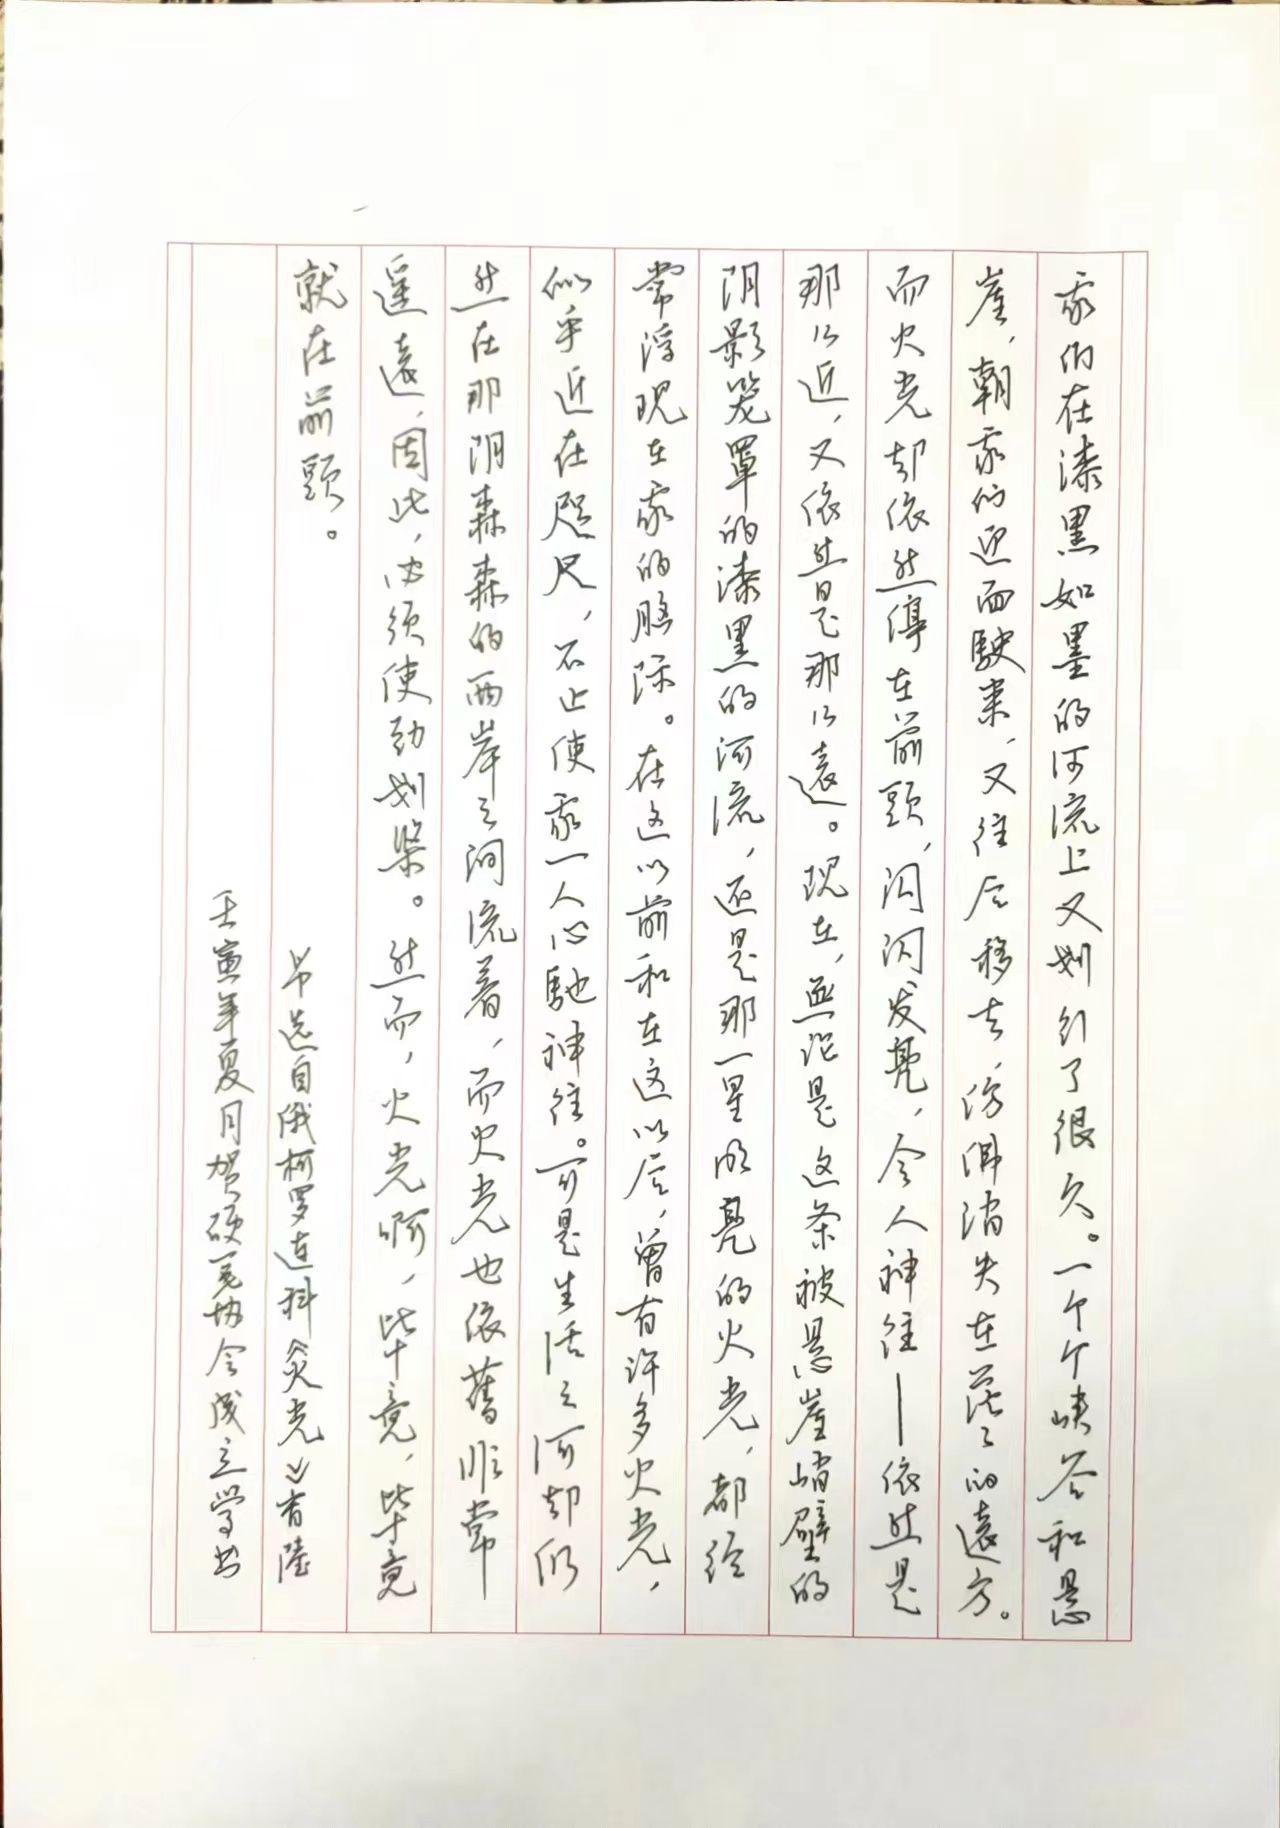 我们在漆黑如墨的河流上又划行了很久。一个个峡谷和悬
崖，朝我们迎面駛来，又往后移去，仿佛消失在茫茫的遠方。
而火光却依然停在前頭，闪闪发亮，令人神往——依然是
那么近，又依然是那么遠。现在，無论是这条被悬崖峭壁的
阴影笼罩的漆黑的河流，还是那一星明亮的火光，都经
常浮现在我的脑际。在这以前和在这以后，曾有许多火光，
似乎近在咫尺，不止使我一人心馳神往。可是生活之河却仍
然在那阴森森的两岸之间流着，而火光也依舊非常
遥遠，因此，必须使劲划桨。然而，火光啊，毕竟，毕竟
就在前頭。
节选自俄柯罗连科炎光》有陸
壬寅年夏月贺硬笔协会成立学书